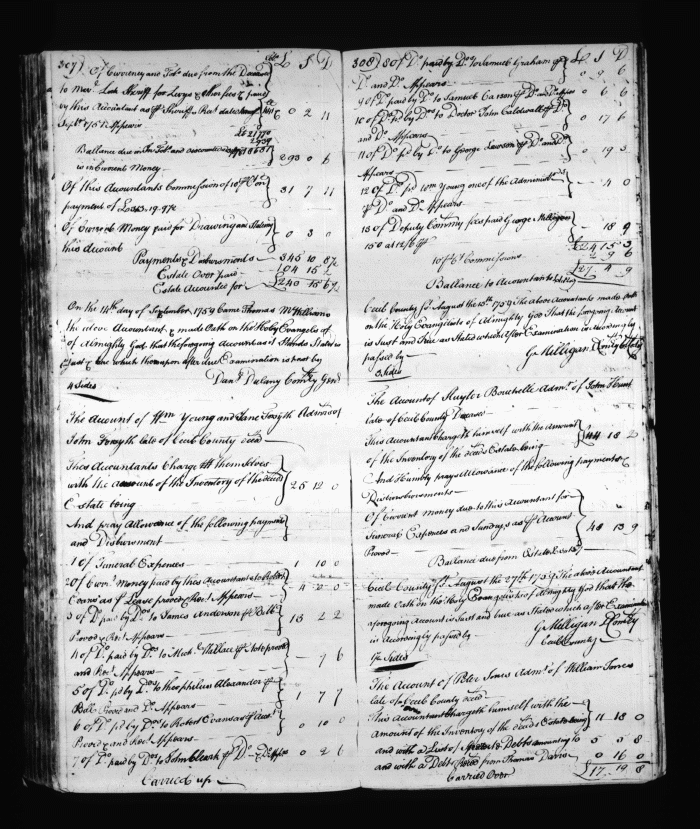 307) Of Currency and Tobo due from the Deceased
to Mer. Lock Sheriff for Levys & other fees & paid
by this Accountant as pr Sheriffs Rect dated
Septr 1751 Appears 0 2 11
Ballance due in
is in Current Money 293 0 8
Of this Accountants Commission of 10 pr Ct on
payment of 31 7 11
Of Current Money paid for Drawing and Stating
this Account 0 3 0
Payments & Disbursements 345 10 8½
Estate Over paid 104 15 2
Estate Accounted for £240 15 6½
On the 14th day of September 1759 Came Thomas McWilliams
the above Accountant & made Oath on the Holy Evangelis of
of Almighty God that the foregoing Account as it Stands Stated is
Just & true which thereupon after due Examination is past by
4 Sides Danl Dulany Comry Genl
The Account of Wm Young and Jane Forsyth Admrs of
John Forsyth late of Cecil County deced
These Accountants Charge themselves
with the amount of the Inventory of the deced
Estate being 25 12 0
And pray Allowance of the following payments
and Disbursment
1 Of Funeral Expences 1 10 0
2 Of Curr. Money paid by this Accountant to Robert
Evans as pr Lease proved & Rect Appears 4 0 0
3 of Do paid by Do to James Anderson pr Bill
Proved & Rect Appears 13 2 2
4 of Do paid by Do to Mich. Wallace pr Note proved
and Rect Appears - 9 6
5 of Do pd by Do to Theophelus Alexander pr
Bill Proved and Do Appears 1 7 7
6 of Do pd by Do to Robert Evans as pr Acct
Proved and Rect Appears 0 10 0
7 of Do paid by Do to John Cleark pr Do & Do Apprs 0 2 6
Carried up
308) 8 of Do paid by Do to Samuel Graham pr
Do and Do Appears 0 9 6
9 of Do paid by Do to Samuel Carson pr Do and Do Apprs 0 6 6
10 of Do pd by Do to Doctor John Caldwell pr Do
and Do Appears 0 17 6
11 of Do pd by Do to George Lawson pr Do and Do
Appears 0 19 3
12 of Do pd Wm Young one of the Administrs
pr Do and Do Appears - 4 0
13 of Deputy Commry fees paid George Milligan
- 18 9
£24 15 3
10 pr Ct Commissions 2 9 6
£27 4 9
Ballance to Accountants
Cecil County Ss August the 15th 1759 The above Accountants made Oath
on the Holy Evangelists of Almighty God that the foregoing Account
is Just and True as Stated which After Examination is Accordingly
passed by
G. Milligan D Comry Cecil Coty
3 Sides
The Account of Sluyter Bouchelle Admr of John Hunt
late of Cecil County Deceased
This Accountant Chargeth himself with the Amount
of the Inventory of the deceds Estate being £44 18 2
And Humbly prays Allowance of the following payments &
Disbursements
Of Current money due to this Accountant for
Funeral Expences and Sundrys as pr Account
Proved 48 13 9
Ballance due from Estate
Cecil County Ss August the 27th 1759 The above Accountant
made Oath on the Holy Evangelists of Almighty God that the
aforegoing Account is Just and true as Stated which after Examination
is Accordingly passed by G. Milligan D Comry
Cecil County
Sides
The Account of Peter Jones Admr of William Jones
late of Cecil County deced
This Accountant Chargeth himself with the
Amount of the Inventory of the deceds Estate being 11 18 0
and with a List of Debts amounting to 5 5 8
and with a Debt from Thomas Davis 0 16 0
Carried Over £17 19 8